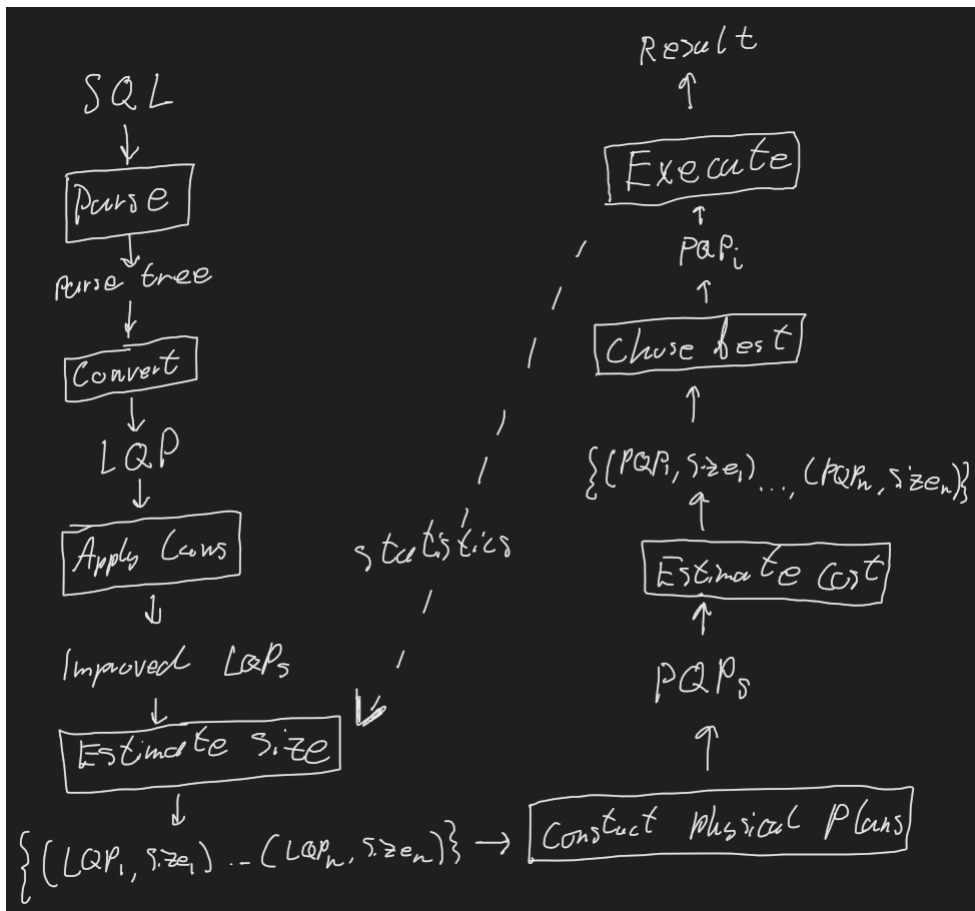 SQL
Parse
Parse tree
Convert
LQP
Apply Laws
Improved LQPs
Estimate size
{(LQP₁, size₁) ... (LQPₙ, sizeₙ)}
Construct physical Plans
PQPs
Estimate cost
{(PQP₁, size₁) ..., (PQPₙ, sizeₙ)}
Chose best
PQPᵢ
Execute
Result
statistics